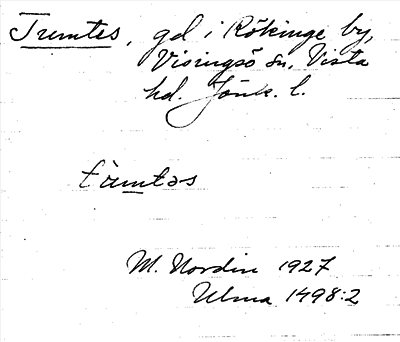 Tremtes, gd i Rökinge by,
Visingsö sn, Vista
hd. Jönk. l.
M. Nordin 1927
Ulma 1498:2